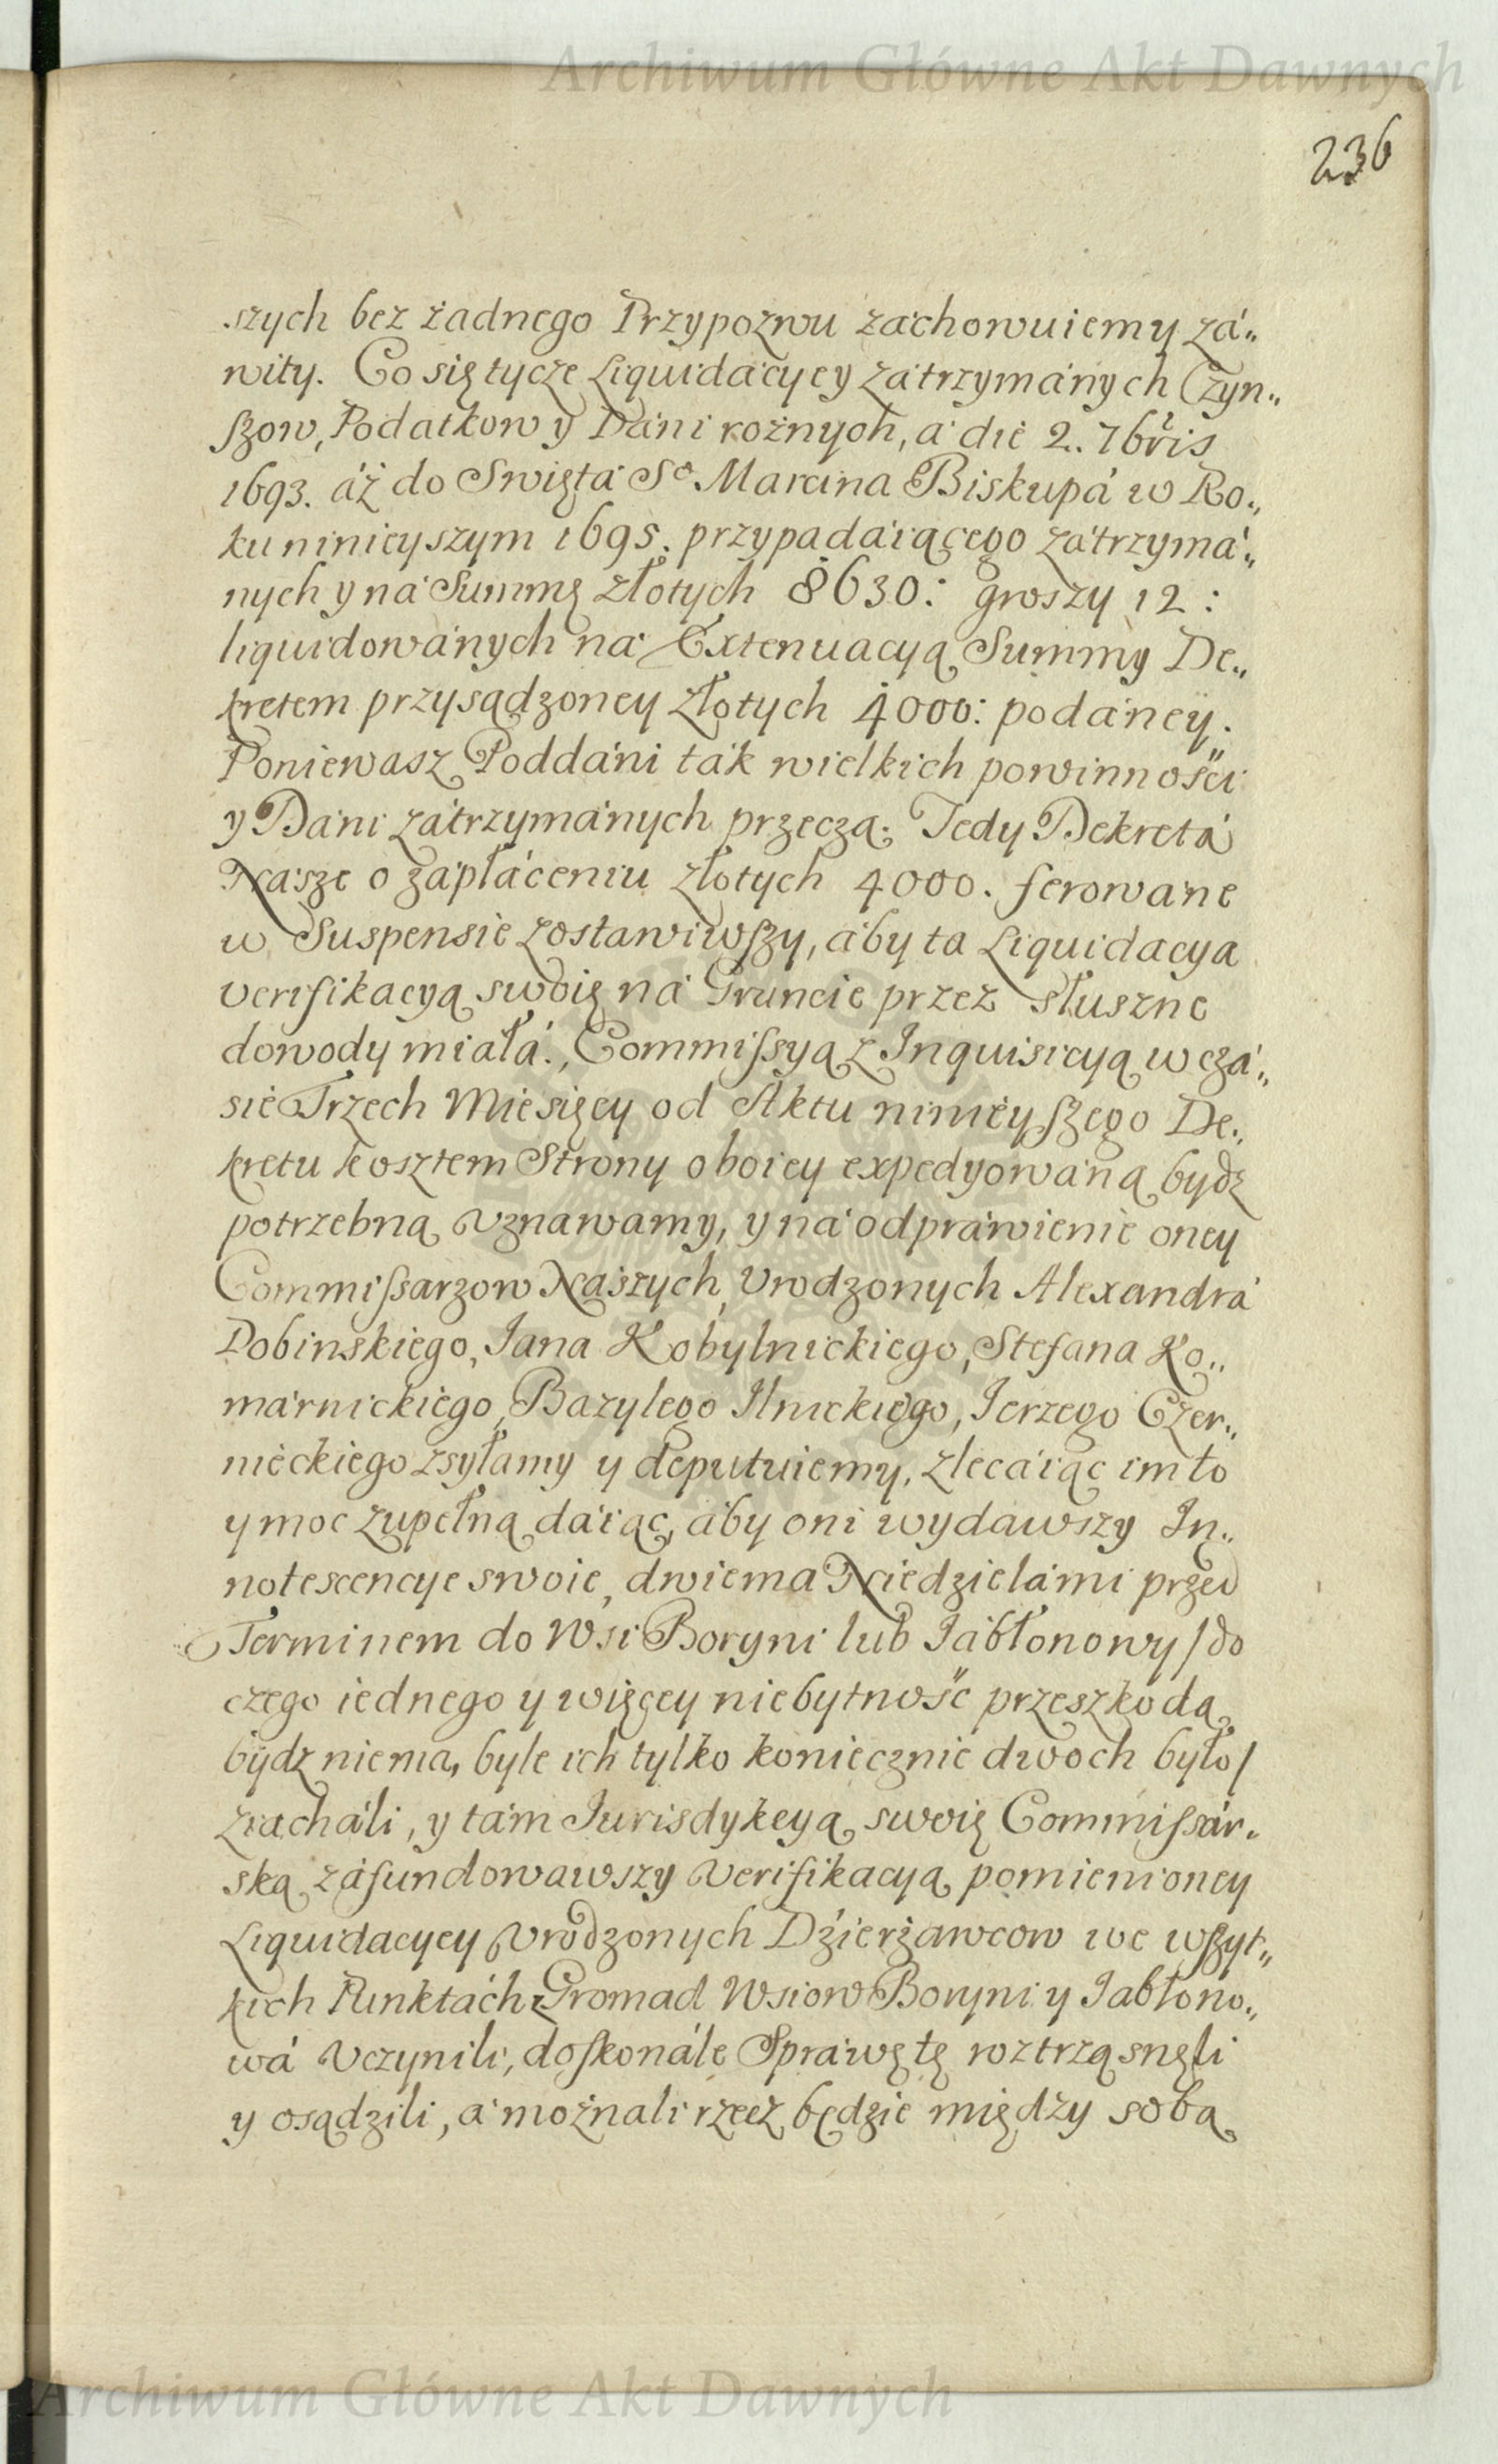 Archiwum Główne Akt Dawnych
236
szych bez żadnego Przypozwu zachowuiemy zá„
wity. Co się tycze Liquidácycy zátrzymánych Czyn„
szow, Podatkow y Dani rożnych, á die 2. 7bris
1693. áż do Swięta So. Marcina Biskupá w Ro„
ku ninieyszym 1695. przypadáiącego zátrzymá„
nych y ná Summę złotych 8630: groszy 12:
liquidowánych ná Extenuacyą Summy De„
kretem przysądzoney złotych 4000: podáney.
Poniewasz Poddáni ták wielkich powinności
y Dáni zátrzymánych przeczą. Tedy Dekretá
Násze o zápłáceniu złotych 4000. ferowane
w Suspensie zostawiwszy, áby ta Liquidacya
verifikacyą swoię ná Gruncie przez słuszne
dowody miałá., Commissyą z Inquisicyą w czá„
sie Trzech Miesięcy od Aktu ninieyszego De„
kretu kosztem Strony oboiey expedyowáną bydź
potrzebną vznawamy, y ná odpráwienie oney
Commissarzow Nászych, Vrodzonych Alexandrá
Dobinskiego, Jana Kobylnickiego, Stefana Ko„
márnickiego, Bazylego Ilnickiego, Jerzego Czer„
nieckiego zsyłamy y deputuiemy, zlecáiąc im to
y moc zupełną dáiąc, áby oni wydawszy In„
notescencye swoie, dwiema Niedzielámi przed
Terminem do Wsi Boryni lub Jábłonowy / do
czego iednego y więcey niebytność przeszkodą
bydz niema, byle ich tylko koniecznie dwoch było /
ziacháli, y tám Jurisdykcyą swoię Commissár„
ską záfundowawszy verifikacyą pomienioney
Liquidacycy Vrodzonych Dzierżawcow we wszyt„
kich Punktách z Gromad Wsiow Boryni y Jabłono„
wá vczynili, doskonále Spráwę tę roztrząsnęli
y osądzili, á możnali rzecz będzie między sobą
Archiwum Główne Akt Dawnych